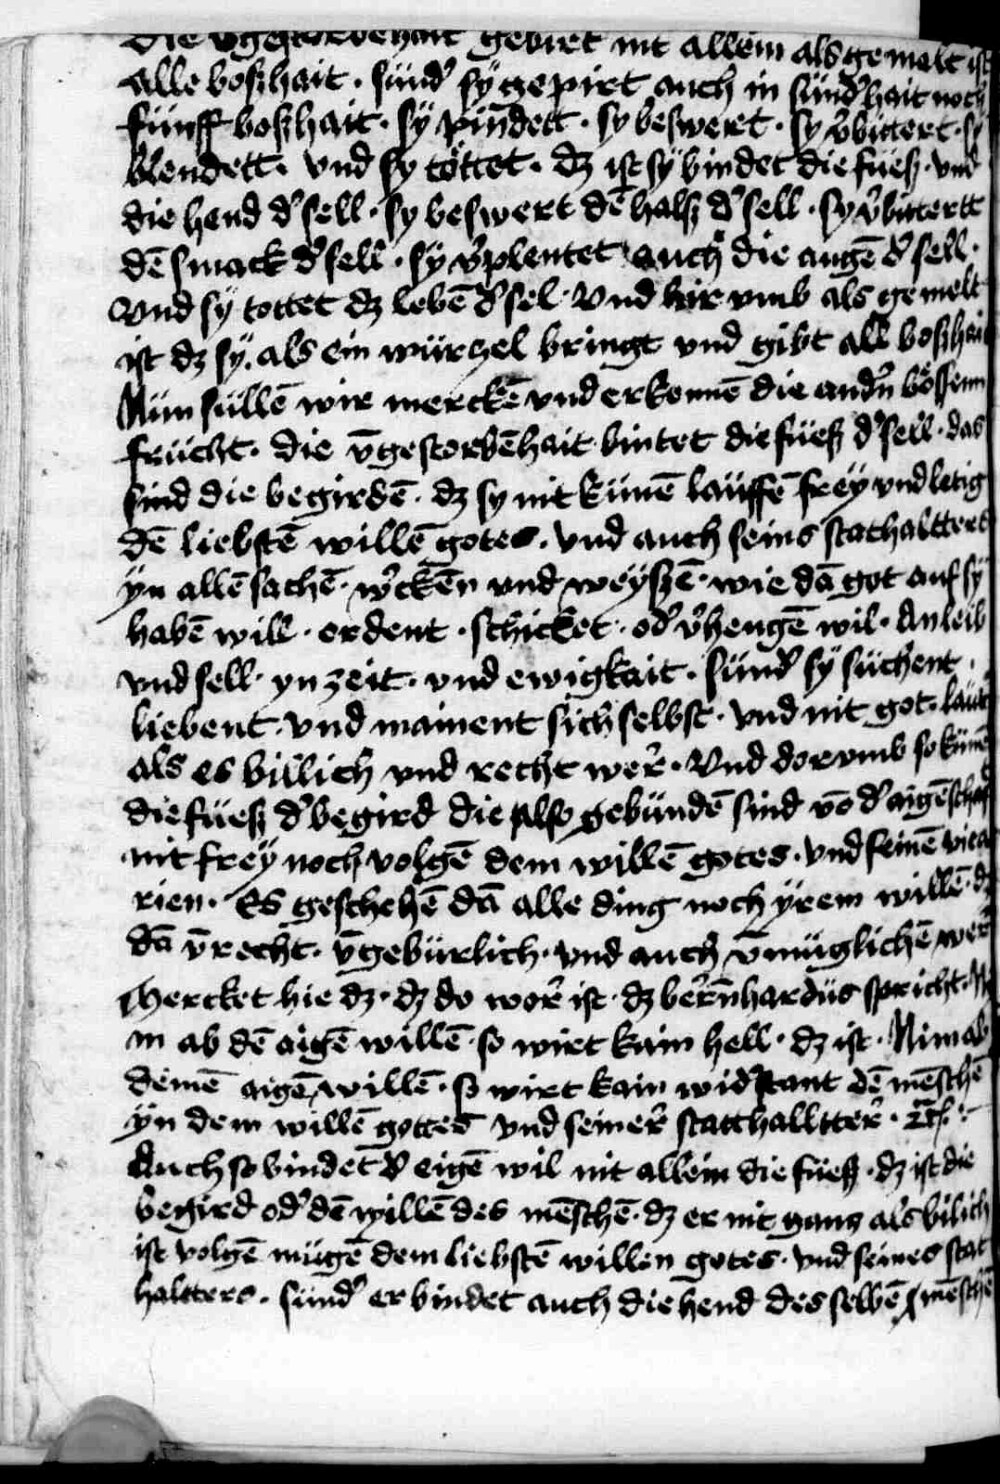 die vgestorbenhait gebirt nit allein als gemelt ist
alle boßhait · sund' sÿ gepirt auch in sund'hait noch
fünff boßhait · sÿ pindett · sy beswert · sy v'bittert · sÿ
blendett · vnd sy töttet · dz ist sÿ bindet die fueß · vnd
die hend d' sell · sy beswert dē halß d' sell · sy v'bittertt
dē smack d' sell · sÿ v'plentet auch die augē d' sell ·
Vnd sÿ tottet dz lebē d' sel · Vnd hir vmb als gemelt
ist dz sÿ · als ein würtzel bringt vnd gibt all boßhait
Nun süllē wir merckē vnd erkennē die and'n bössenn
frücht · die v̄gestorbēhait bintet die füeß d' sell · das
sind die begirdē · dz sy nit künē lauffē freÿ vnd letig
dē liebstē willē gotes · vnd auch seins stathaltters
yn allē sachē · w'ckēn vnd weyszē · wie dā got auf sÿ
habē will · ordent · schicket · od' v'hengē wil · An leib
vnd sell · yn zeit · vnd ewigkait · sund' sÿ süchent ·
liebent · vnd mainent sich selbst · vnd nit got · laut'
als es billich vnd recht wer' · Vnd dor vmb so künē
die füeß d' begird die also gebundē sind vō d' aigēschaft
nit freÿ noch volgē dem willē gotes · vnd seinē vica
rien · Es geschehē dā alle ding noch ÿrem willē · dz
dā v̄recht · v̄gebürlich · vnd auch v̄müglichē wer'
Mercket hie dz · dz do wor' ist · dz ber'nhardus spricht · Ni
m ab dē aigē willē · so wirt kain hell · dz ist · Nim ab
deinē aigē willē · so wirt kain wid'stant dē mēschē
yn dem willē gottes vnd seiner' statthalltter' ·
Auch so bindet d' eigē wil nit allein die füeß · dz ist die
begird od' dē willē des mēschē · dz er nit gantz als bilich
ist volgē mügē dem liebstē willen gotes · vnd seines stat
haltters · sund' er bindet auch die hend des selbē mēschē